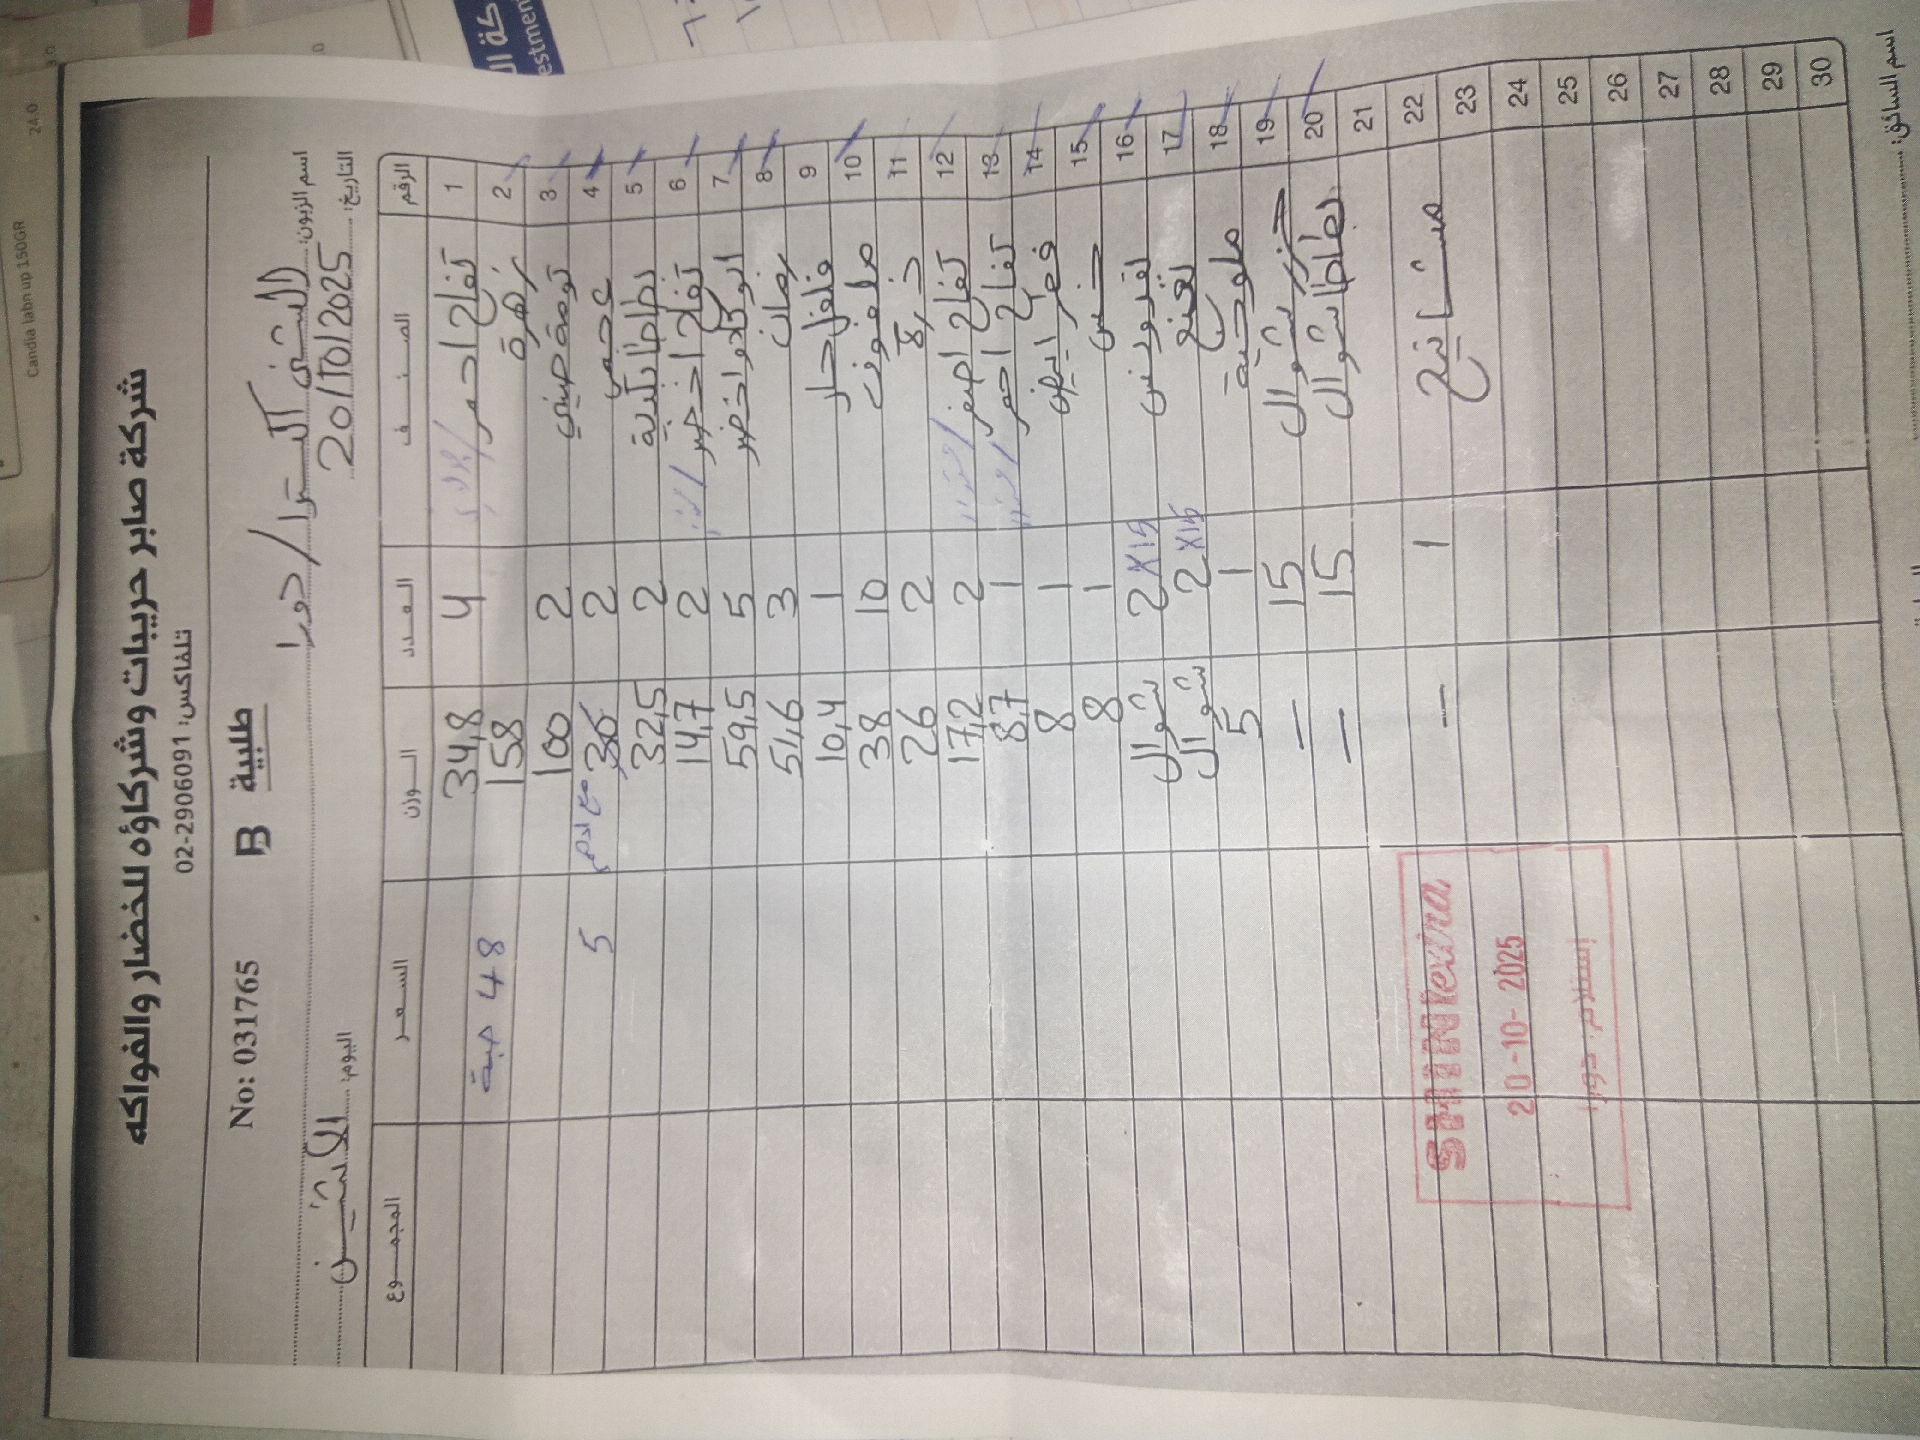 شركة صابر حريبات وشركاؤه للخضار والفواكه
تلفاكس: 02-2906091
No: 031765 طلبية B
اسم الزبون: الشني اكسترا / دورا
اليوم: الاثنين التاريخ: 20/10/2025
الرقم الصنف العدد الوزن السعر المجموع
1 تفاح احمر 4 34,8
2 زهرة 158 48 حبة
3 ثومة صيني 2 100
4 2 5
5 بطاطا 2 32,5
6 تفاح اخضر 2 14,7
7 افوكادو اخضر 5 59,5
8 رمان 3 51,6
9 فلفل حار 1 10,4
10 ملفوف 10 38
11 ذرة 2 26
12 تفاح اصفر 2 17,2
13 تفاح احمر 1 8,7
14 فطر ابيض 1 8
15 خس 1 8
16 بقدونس 2x15 شوال
17 نعنع 2x15 شوال
18 ملوخية 1 5
19 جزر شوال 15 —
20 بطاطا شوال 15 —
21
22 مشاتيح 1 —
23
24
25
26
27
28
29
30
SHINI extra
20-10-2025
إستلام: دورا
اسم السائق:
Candia labn up 150GR
24.0
estment